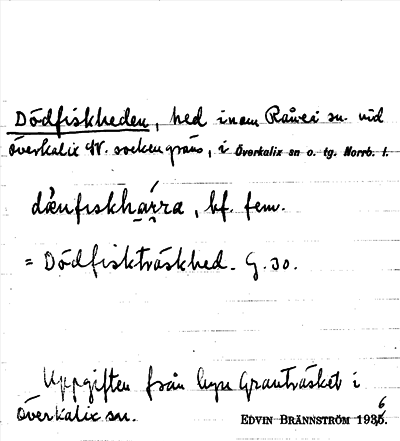 Dödfiskheden, hed inom Råneå sn. vid
överkalix W. sockengräns, i Överkalix sn o. tg. Norrb. l.
dǻnfiskhárra, bf. fem.
= Dödfiskträskhed. G. 30.
Uppgiften från byn Granträsket i
överkalix sn.
EDVIN BRÄNNSTRÖM 1936.